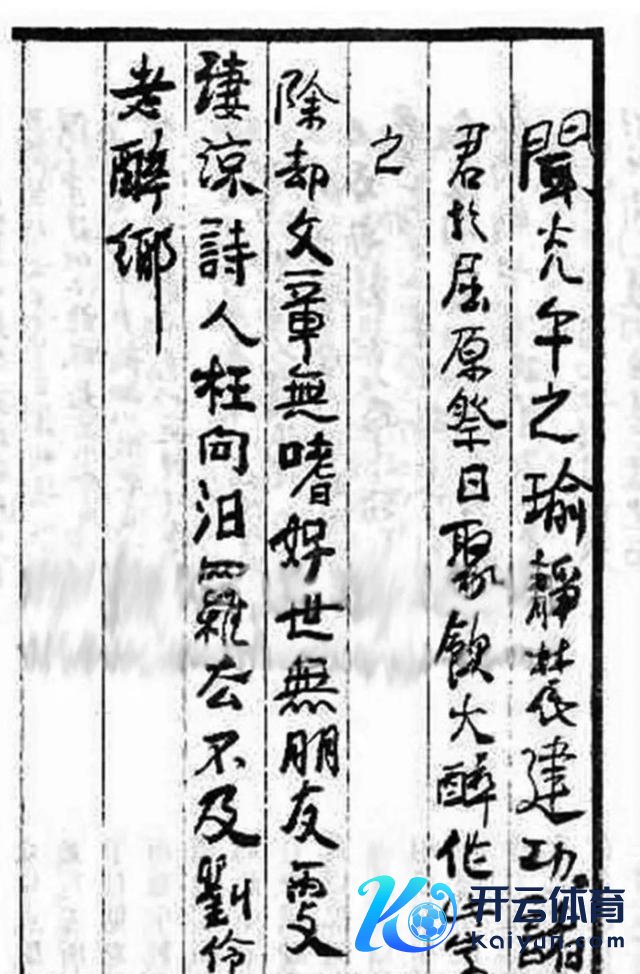 聞光午之瑜靜農建功諸
君於屈原祭日聚飲大醉作
之
除却文章無嗜好世無朋友更
淒涼詩人枉向汨羅去不及劉伶
老醉鄉
开云体育
kaiyun.com